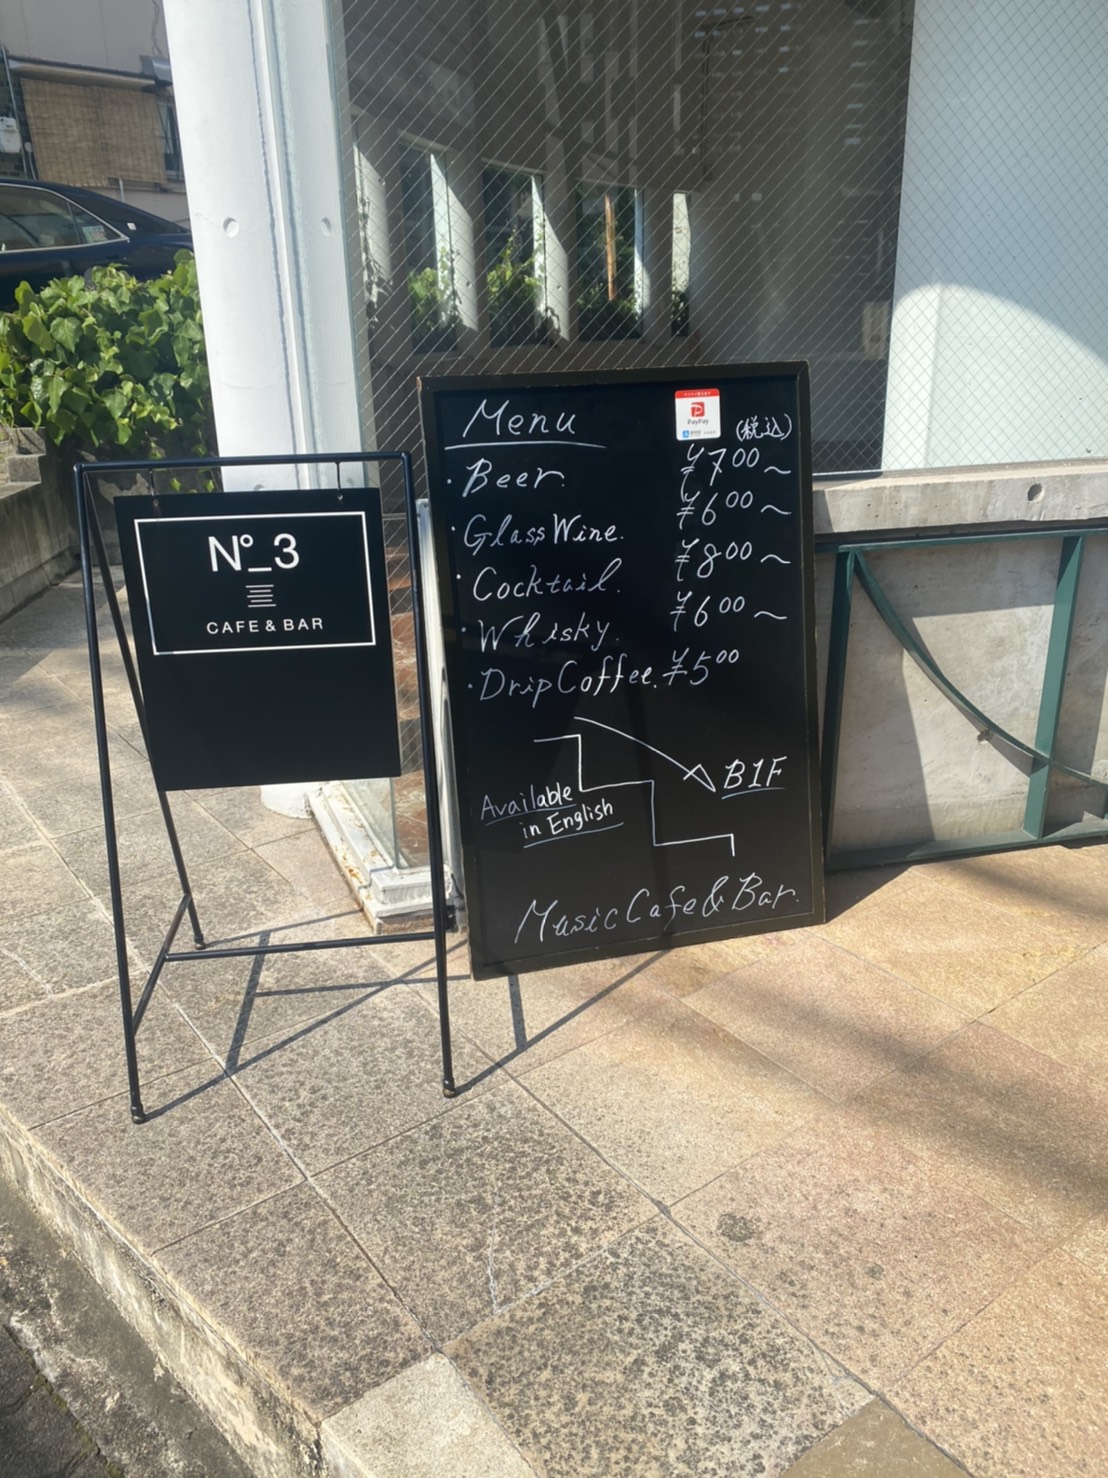 N°_3
CAFE & BAR
Menu
PayPay
(税込)
・Beer. ¥700～
・Glass Wine. ¥600～
・Cocktail. ¥800～
・Whisky. ¥600～
・Drip Coffee. ¥500
B1F
Available
in English
Music Cafe & Bar.